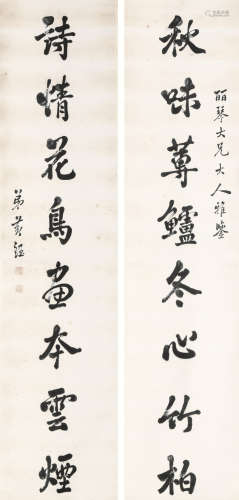 秋味蓴鱸冬心竹柏
丽琴大兄大人雅鑒
詩情花鳥畫本雲煙
弟黃經